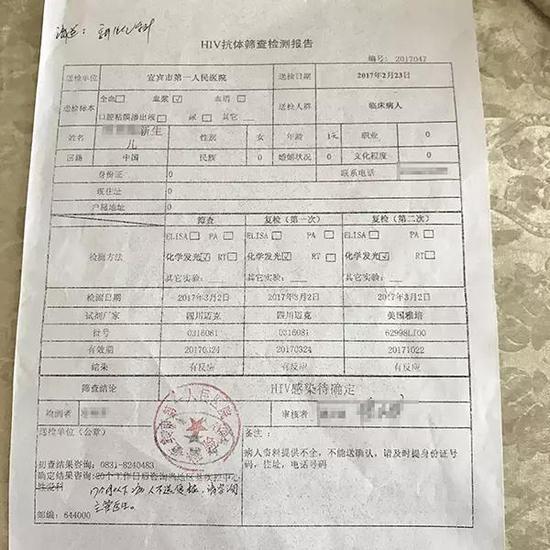 HIV抗体筛查检测报告
编号: 2017047
送检单位 宜宾市第一人民医院 送检日期 2017年2月23日
送检标本 全血□ 血浆☑ 血清□ 送检人群 临床病人
口腔粘膜渗出液□ 尿□ 其它
姓名 新生儿 性别 女 年龄 1天 职业 0
国籍 中国 民族 0 婚姻状况 0 文化程度 0
身份证 0 联系电话
现住址 0
户属地址 0
筛查 复检(第一次) 复检(第二次)
检测方法 ELISA□ PA□ ELISA□ PA□ ELISA□ PA□
化学发光☑ RT□ 化学发光☑ RT□ 化学发光☑ RT□
其它实验: 其它实验: 其它实验:
检测日期 2017年3月2日 2017年3月2日 2017年3月2日
试剂厂家 四川迈克 四川迈克 美国雅培
批号 0316081 0316081 62998LI00
有效期 20170324 20170324 20171022
结果 有反应 有反应 有反应
筛查结论 HIV感染待确定
检测者 审核者
送检单位(公章) 备注:
病人资料提供不全,不能送确认,请及时提身份证号码,住址,电话号码
初查结果咨询: 0831-8240483
确定结果咨询:20个工作日后咨询
主管医生。
邮编: 644000